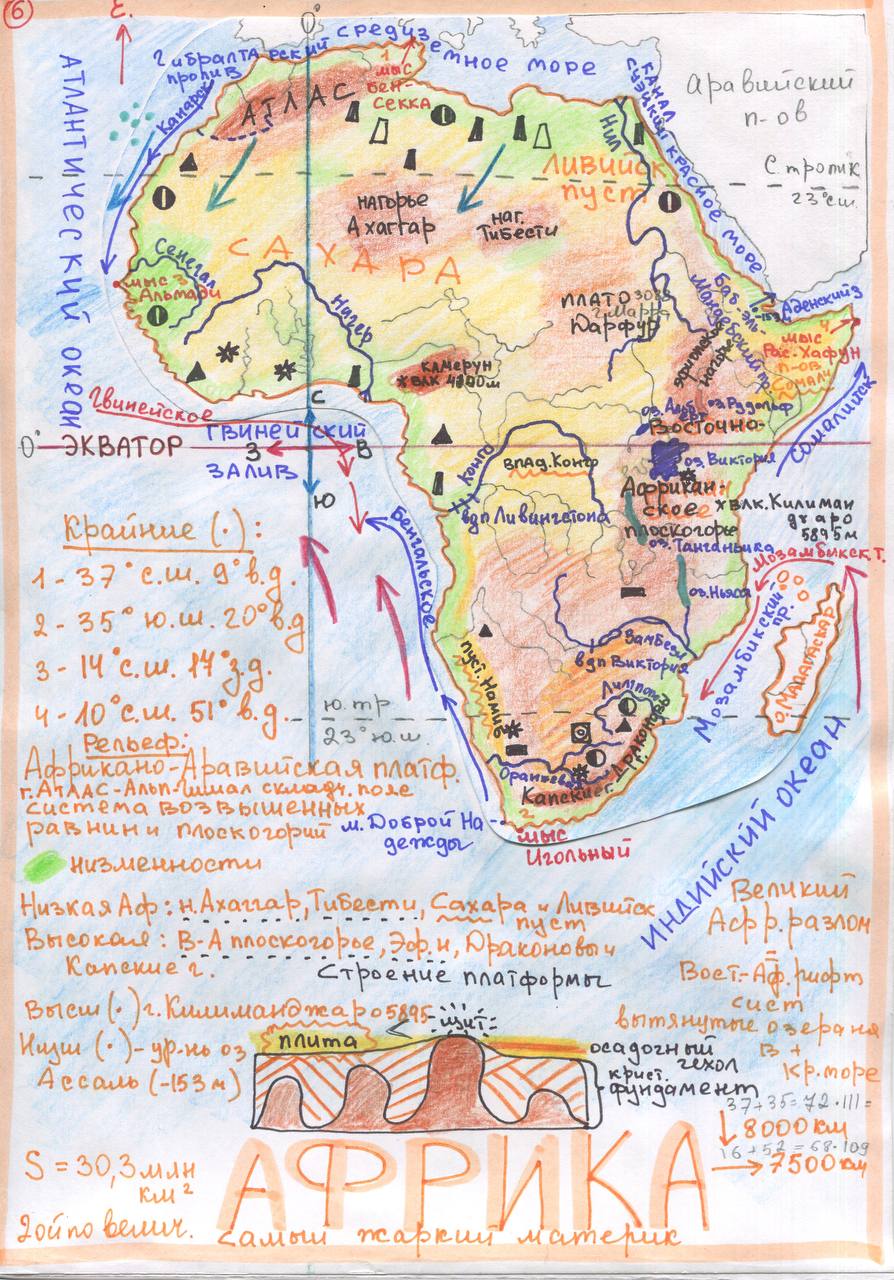 6
0°
С.
АТЛАНТИЧЕСКИЙ ОКЕАН
Гибралтарский
пролив
Средиземное море
Канарск
1
мыс
Бен-
Секка
АТЛАС
Суэцкий
канал
Нил
Красное море
Аравийский
п-ов
С. тропик
23° с.ш.
ЛИВИЙСК
ПУСТ
НАГОРЬЕ
Ахаггар
наг.
Тибести
САХАРА
Сенегал
мыс 3
Альмади
Нигер
ПЛАТО
Дарфур
3088
г. Марра
Баб-эль-
Мандебский пр.
-153м
Аденский з
Эфиопское
нагорье
4
мыс
Рас-Хафун
п-ов
Сомали
КАМЕРУН
ВЛК 4100м
Гвинейское
0°
ЭКВАТОР
С
З
В
Ю
ГВИНЕЙСКИЙ
ЗАЛИВ
Конго
впад. Конго
вдп Ливингстона
оз. Альберт
оз. Рудольф
Восточно-
оз. Виктория
Африкан-
ское
плоскогорье
Сомалийск
влк. Килиман
джаро
5895м
оз. Танганьика
Мозамбикск т.
оз. Ньяса
Мозамбикский пр.
о. Мадагаскар
Бенгальское
Крайние (·):
1 - 37° с.ш. 9° в.д.
2 - 35° ю.ш. 20° в.д
3 - 14° с.ш. 17° з.д.
4 - 10° с.ш. 51° в.д.
Ю. тр
23° ю.ш.
пуст. Намиб
Замбези
вдп Виктория
Лимпопо
Оранжевая
Драконовы
Капские г.
2
мыс
Игольный
м. Доброй На-
дежды
ИНДИЙСКИЙ ОКЕАН
Рельеф:
Африкано-Аравийская платф.
г. АТЛАС-Альп-Гимал складч. пояс
система возвышенных
равнин и плоскогорий
низменности
Низкая Аф: н. Ахаггар, Тибести, Сахара и Ливийск
пуст
Высокая: В-А плоскогорье, Эф. н, Драконовы и
Капские г.
Великий
Афр. разлом
=
Вост.-Аф. рифт
сист
вытянутые озера на
В +
Кр. море
Строение платформы
Высш (·) г. Килиманджаро 5895
Низш (·) - ур-нь оз
Ассаль (-153 м)
плита
щит
осадочный
чехол
крист.
фундамент
37+35=72·111=
8000 км
16+52=68·109
7500 км
S = 30,3 млн
км²
2ой по велич.
АФРИКА
самый жаркий материк